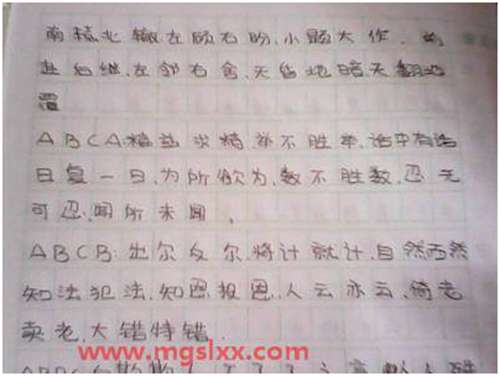 南辕北辙、左顾右盼、小题大作、前
赴后继、左邻右舍、天昏地暗、天翻地
覆
ABCA:精益求精、举不胜举、话中有话
日复一日、为所欲为、数不胜数、忍无
可忍、闻所未闻、
ABCB:出尔反尔、将计就计、自然而然
知法犯法、知恩报恩、人云亦云、倚老
卖老、大错特错、
www.mgslxx.com